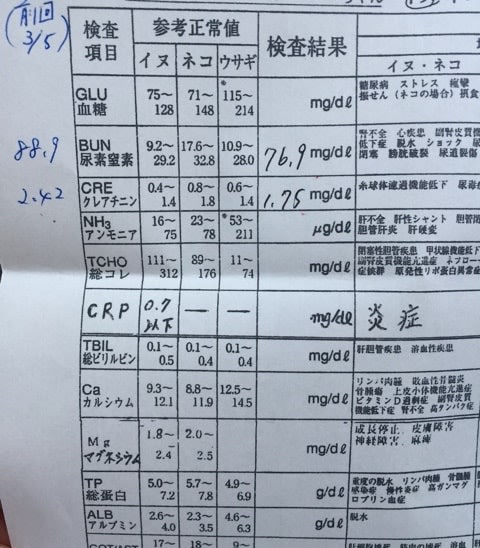 前回
3/5
検査項目 参考正常値 検査結果
イヌ ネコ ウサギ イヌ・ネコ
GLU 75~ 71~ *115~ mg/dℓ 糖尿病 ストレス 痙攣
血糖 128 148 214 振せん(ネコの場合)摂食
88.9 BUN 9.2~ 17.6~ 10.9~ 76.9 mg/dℓ 腎不全 心疾患 副腎皮質機
尿素窒素 29.2 32.8 28.0 低下症 脱水 ショック 尿
閉塞 膀胱破裂 尿道裂傷
2.42 CRE 0.4~ 0.8~ 0.6~ 1.75 mg/dℓ 糸球体濾過機能低下 尿毒
クレアチニン 1.4 1.8 1.4
NH3 16~ 23~ *53~ μg/dℓ 肝不全 肝性シャント 胆管閉
アンモニア 75 78 211 胆管肝炎 肝硬変
TCHO 111~ 89~ 11~ mg/dℓ 閉塞性胆管疾患 甲状腺機能低
総コレ 312 176 74 副腎皮質機能亢進症 ネフローゼ
症候群 原発性リポ蛋白異常症
CRP 0.7以下 — — mg/dℓ 炎症
TBIL 0.1~ 0.1~ 0.1~ mg/dℓ 肝胆管疾患 溶血性疾患
総ビリルビン 0.5 0.4 0.4
Ca 9.3~ 8.8~ 12.5~ mg/dℓ リンパ肉腫 敗血性骨髄炎
カルシウム 12.1 11.9 14.5 骨腫瘍 上皮小体機能亢進症
ビタミンD過剰症 副腎皮質
機能低下症 腎不全 高タンパク症
Mg 1.8~ 2.0~ mg/dℓ 成長停止、皮膚障害
マグネシウム 2.4 2.5 神経障害、麻痺
TP 5.0~ 5.7~ 4.9~ g/dℓ 重度の脱水 リンパ肉腫 骨髄腫
総蛋白 7.2 7.8 6.9 感染症 慢性炎症 高ガンマグ
ロブリン血症
ALB 2.6~ 2.3~ 4.6~ g/dℓ 脱水
アルブミン 4.0 3.5 6.3
GOT/AST 17~ 18~ 9~